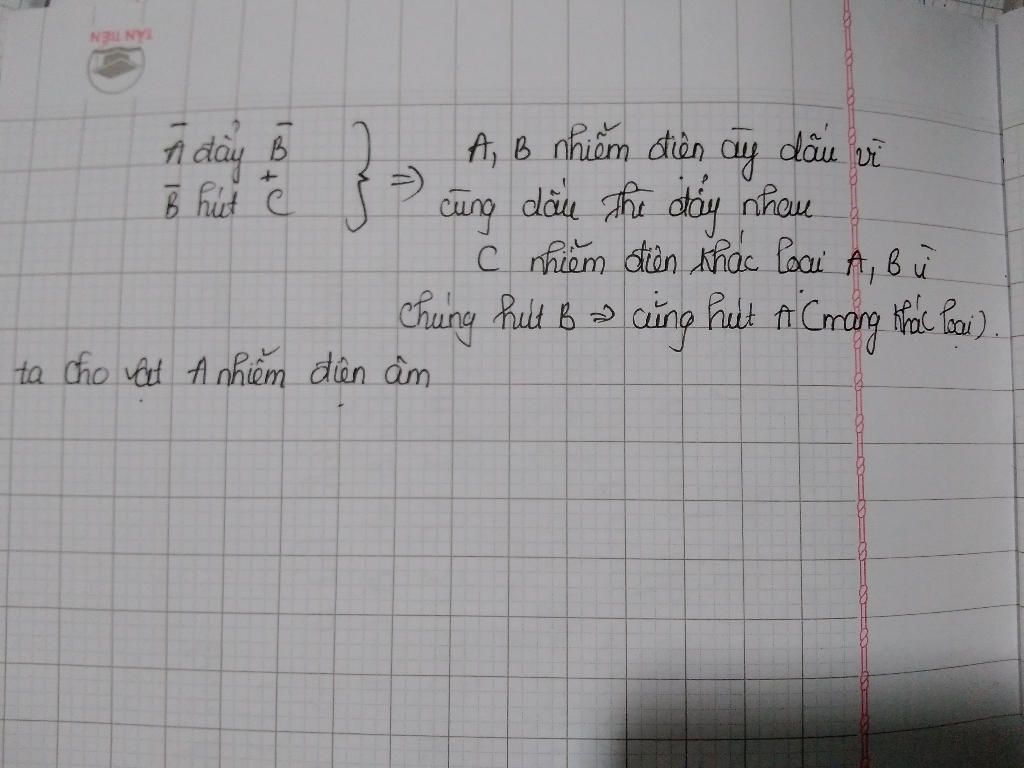 TÂN TIẾN
A đẩy B
B hút C
} => A, B nhiễm điện cùng dấu vì
cùng dấu thì đẩy nhau
C nhiễm điện khác loại A, B vì
chúng hút B => cũng hút A (mang khác loại).
ta cho vật A nhiễm điện âm